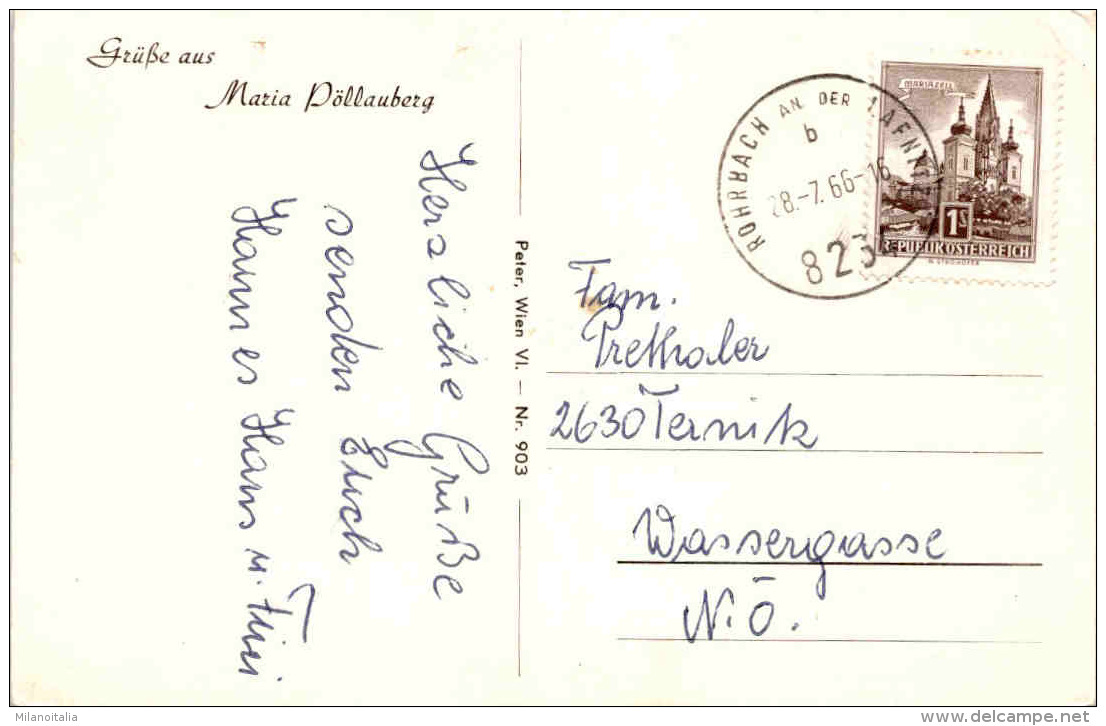 Grüße aus
Maria Pöllauberg
Herzliche Grüße
senden Euch
Hannes Hans u. Fini
Peter, Wien VI. — Nr. 903
ROHRBACH AN DER LAFNITZ
b
28.-7.66-16
823
MARIAZELL
1S
REPUBLIK ÖSTERREICH
Fam.
Prethaler
2630 Ternitz
Wassergasse
N.Ö.
Milanoitalia
www.delcampe.net